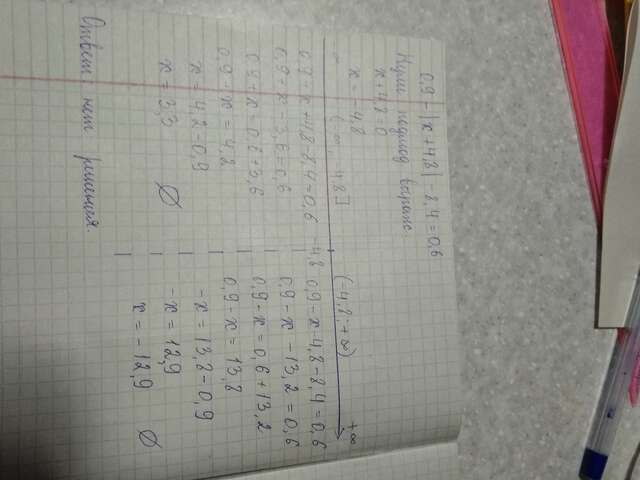 0,9 - |x + 4,8| - 8,4 = 0,6
Нули подмод выраже
x + 4,8 0
x = -4,8
-∞ (-∞; -4,8] -4,8 (-4,8; +∞) +∞
0,9 + x + 4,8 8,4 = 0,6
0,9 + x - 3,6 = 0,6
0,9 + x = 0,6 + 3,6
0,9 - x = 4,2
x = 4,2 - 0,9
x = 3,3 ∅
0,9 - x - 4,8 - 8,4 = 0,6
0,9 - x - 13,2 = 0,6
0,9 - x = 0,6 + 13,2
0,9 - x = 13,8
-x = 13,8 - 0,9
-x = 12,9
x = -12,9 ∅
Ответ: нет решения.